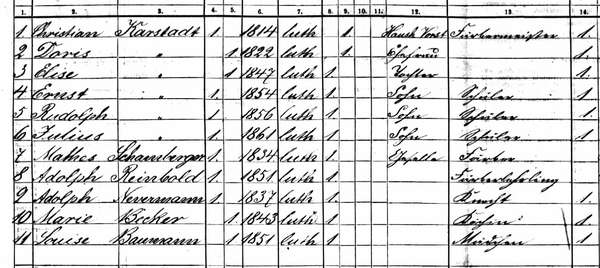 1. 2. 3. 4. 5. 6. 7. 8. 9. 10. 11. 12. 13. 14.
1 Christian Karstadt 1. 1814 luth 1. Haush. Vorst Färbermeister 1.
2 Doris " 1 1822 luth 1. Ehefrau 1.
3 Elise " 1 1847 luth 1. Tochter 1.
4 Ernst " 1. 1854 luth 1. Sohn Schüler 1.
5 Rudolph " 1. 1856 luth 1. Sohn Schüler 1.
6 Julius " 1. 1861 luth 1. Sohn Schüler 1.
7 Mathes Schamberger 1. 1834 luth 1. Geselle Färber
8 Adolph Reinbold 1. 1851 luth 1. Färberlehrling
9 Adolph Nevermann 1. 1837 luth 1. Knecht 1.
10 Marie Becker 1 1843 luth 1. Köchin 1.
11 Louise Baumann 1 1851 luth 1. Mädchen 1.